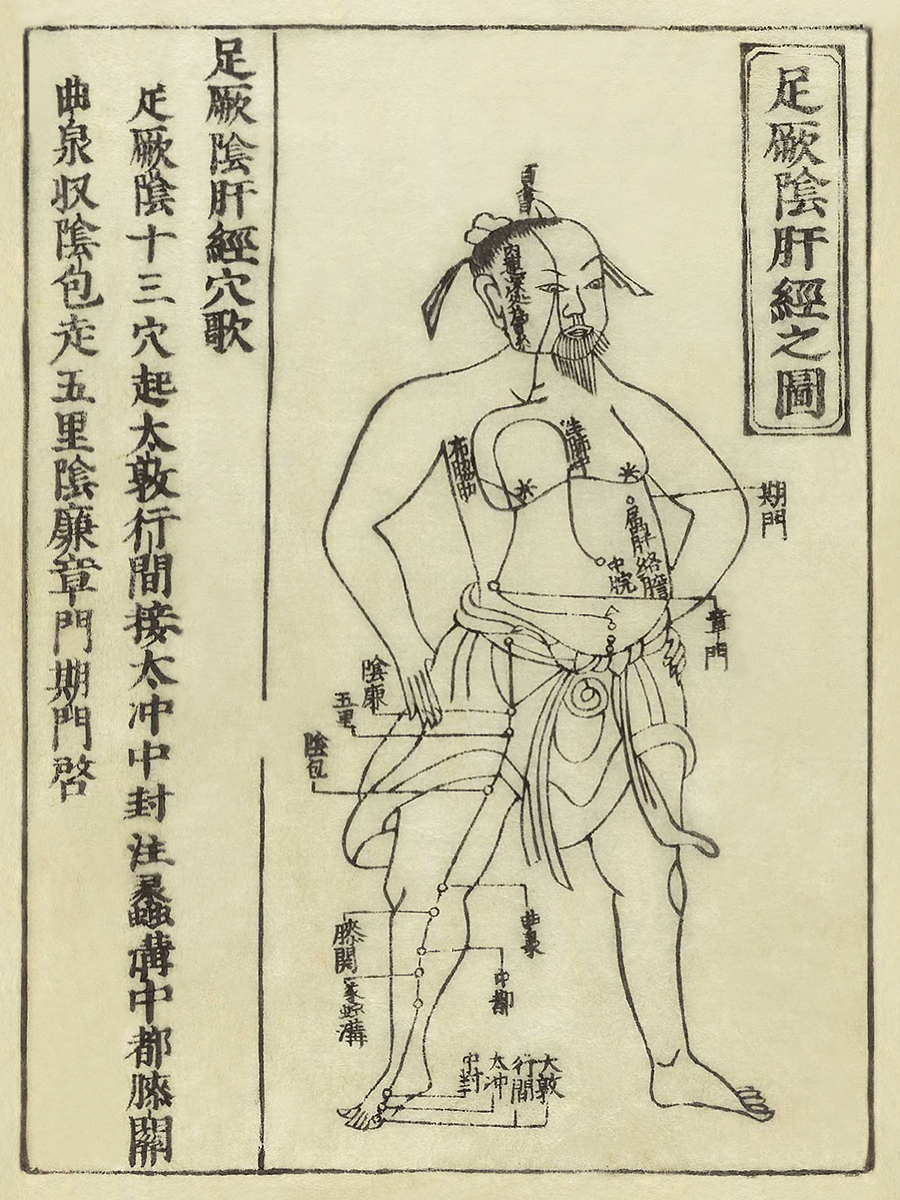 足厥陰肝經之圖
百會
期門
章門
中脘
屬肝
絡膽
布脇肋
陰廉
五里
陰包
曲泉
膝関
中都
蠡溝
大敦
行間
太冲
中封
足厥陰肝經穴歌
足厥陰十三穴起太敦行間接太冲中封注蠡溝中都膝關
曲泉収陰包走五里陰廉章門期門啓